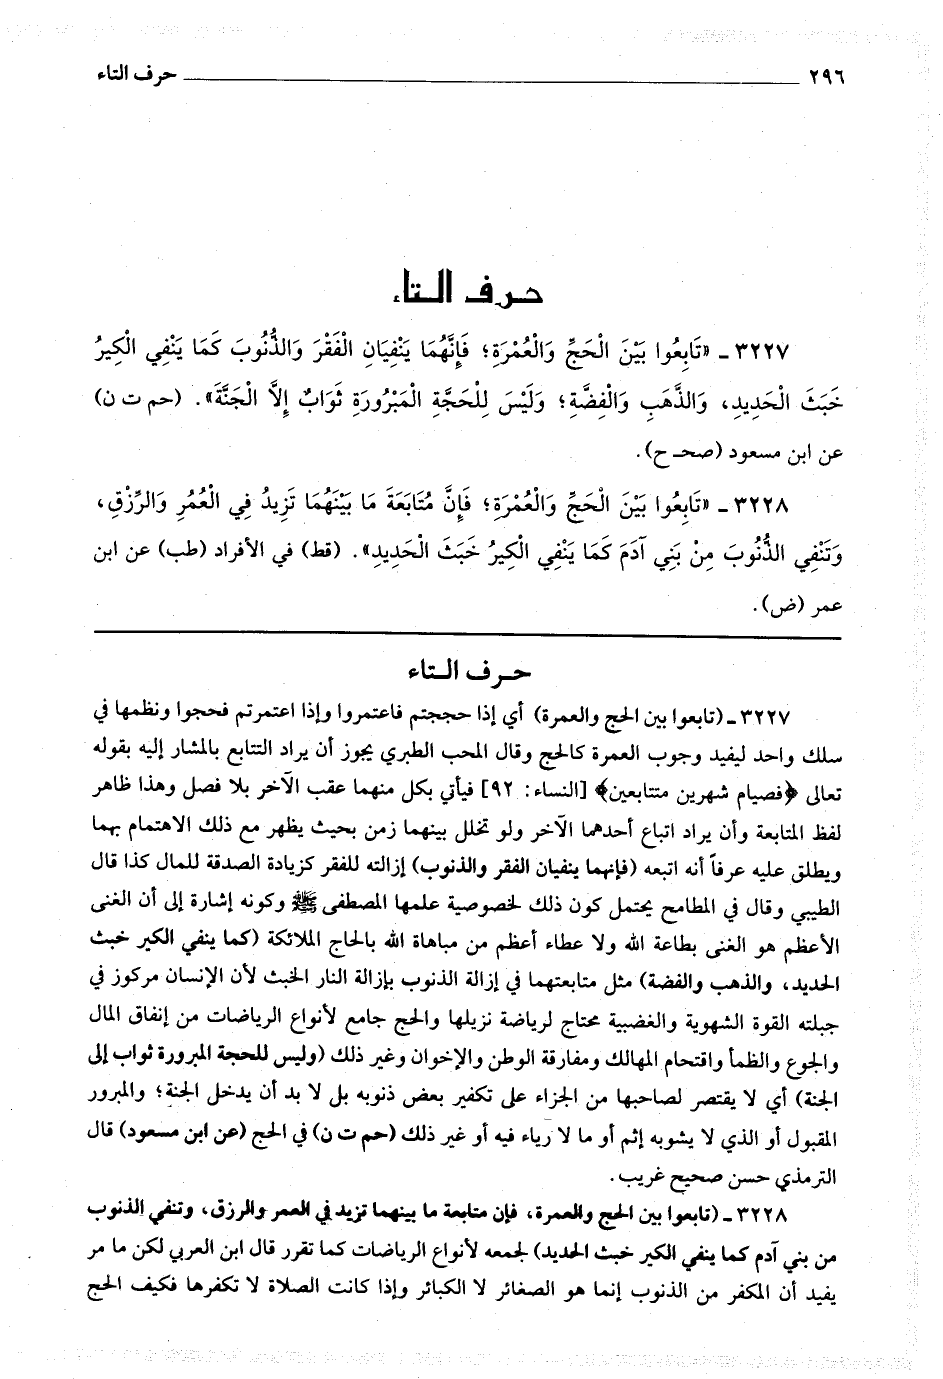 ٢٩٦ حرف التاء
حـرف الـتاء
٣٢٢٧ ـ «تَابِعُوا بَيْنَ الْحَجِّ وَالْعُمْرَةِ؛ فَإِنَّهُمَا يَنْفِيَانِ الْفَقْرَ وَالذُّنُوبَ كَمَا يَنْفِي الْكِيرُ
خَبَثَ الْحَدِيدِ، وَالذَّهَبِ وَالْفِضَّةِ؛ وَلَيْسَ لِلْحَجَّةِ الْمَبْرُورَةِ ثَوَابٌ إِلاَّ الْجَنَّةَ». (حم ت ن)
عن ابن مسعود (صحـ ح).
٣٢٢٨ ـ «تَابِعُوا بَيْنَ الْحَجِّ وَالْعُمْرَةِ؛ فَإِنَّ مُتَابَعَةَ مَا بَيْنَهُمَا تَزِيدُ فِي الْعُمُرِ وَالرِّزْقِ،
وَتَنْفِي الذُّنُوبَ مِنْ بَنِي آدَمَ كَمَا يَنْفِي الْكِيرُ خَبَثَ الْحَدِيدِ». (قط) في الأفراد (طب) عن ابن
عمر (ض).
حـرف الـتاء
٣٢٢٧ ـ (تابعوا بين الحج والعمرة) أي إذا حججتم فاعتمروا وإذا اعتمرتم فحجوا ونظمها في
سلك واحد ليفيد وجوب العمرة كالحج وقال المحب الطبري يجوز أن يراد التتابع بالمشار إليه بقوله
تعالى ﴿فصيام شهرين متتابعين﴾ [النساء: ٩٢] فيأتي بكل منهما عقب الآخر بلا فصل وهذا ظاهر
لفظ المتابعة وأن يراد اتباع أحدهما الآخر ولو تخلل بينهما زمن بحيث يظهر مع ذلك الاهتمام بهما
ويطلق عليه عرفاً أنه اتبعه (فإنهما ينفيان الفقر والذنوب) إزالته للفقر كزيادة الصدقة للمال كذا قال
الطيبي وقال في المطامح يحتمل كون ذلك لخصوصية علمها المصطفى ﷺ وكونه إشارة إلى أن الغنى
الأعظم هو الغنى بطاعة الله ولا عطاء أعظم من مباهاة الله بالحاج الملائكة (كما ينفي الكير خبث
الحديد، والذهب والفضة) مثل متابعتهما في إزالة الذنوب بإزالة النار الخبث لأن الإنسان مركوز في
جبلته القوة الشهوية والغضبية محتاج لرياضة نزيلها والحج جامع لأنواع الرياضات من إنفاق المال
والجوع والظمأ واقتحام المهالك ومفارقة الوطن والإخوان وغير ذلك (وليس للحجة المبرورة ثواب إلى
الجنة) أي لا يقتصر لصاحبها من الجزاء على تكفير بعض ذنوبه بل لا بد أن يدخل الجنة؛ والمبرور
المقبول أو الذي لا يشوبه إثم أو ما لا رياء فيه أو غير ذلك (حم ت ن) في الحج (عن ابن مسعود) قال
الترمذي حسن صحيح غريب.
٣٢٢٨ ـ (تابعوا بين الحج والعمرة، فإن متابعة ما بينهما تزيد في العمر والرزق، وتنفي الذنوب
من بني آدم كما ينفي الكير خبث الحديد) لجمعه لأنواع الرياضات كما تقرر قال ابن العربي لكن ما مر
يفيد أن المكفر من الذنوب إنما هو الصغائر لا الكبائر وإذا كانت الصلاة لا تكفرها فكيف الحج